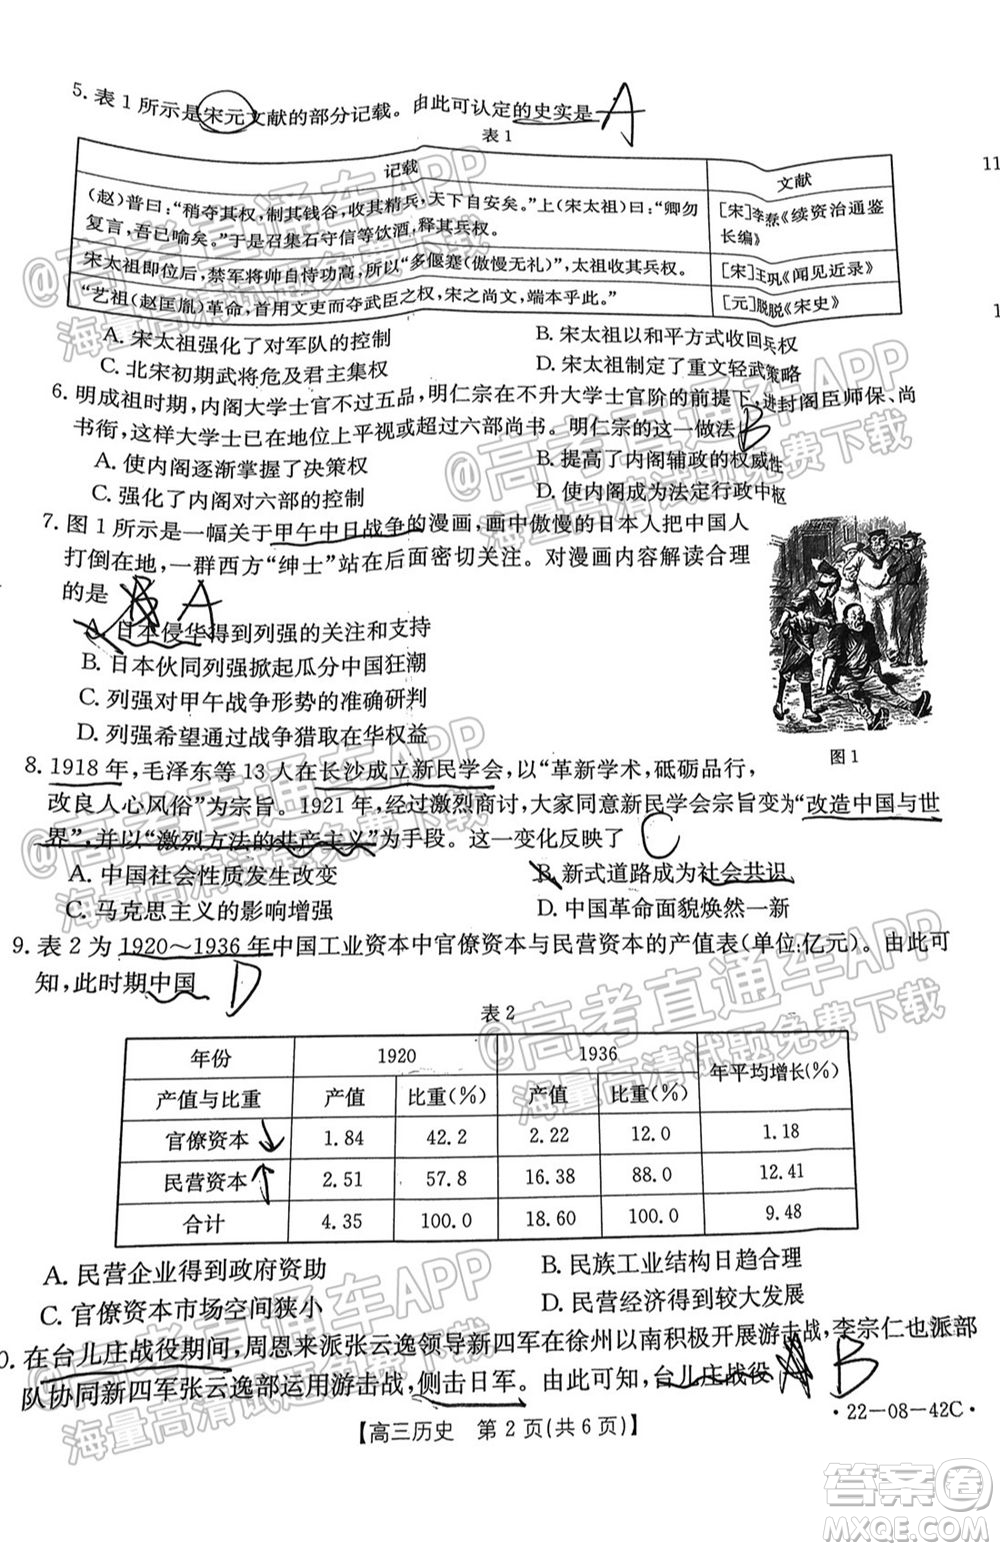 5. 表1所示是宋元文献的部分记载。由此可认定的史实是 A
表1
记载 文献
(赵)普曰:“稍夺其权,制其钱谷,收其精兵,天下自安矣。”上(宋太祖)曰:“卿勿复言,吾已喻矣。”于是召集石守信等饮酒,释其兵权。 [宋]李焘《续资治通鉴长编》
宋太祖即位后,禁军将帅自恃功高,所以“多偃蹇(傲慢无礼)”,太祖收其兵权。 [宋]王巩《闻见近录》
“艺祖(赵匡胤)革命,首用文吏而夺武臣之权,宋之尚文,端本乎此。” [元]脱脱《宋史》
A. 宋太祖强化了对军队的控制 B. 宋太祖以和平方式收回兵权
C. 北宋初期武将危及君主集权 D. 宋太祖制定了重文轻武策略
6. 明成祖时期,内阁大学士官不过五品,明仁宗在不升大学士官阶的前提下,进封阁臣师保、尚
书衔,这样大学士已在地位上平视或超过六部尚书。明仁宗的这一做法 B
A. 使内阁逐渐掌握了决策权 B. 提高了内阁辅政的权威性
C. 强化了内阁对六部的控制 D. 使内阁成为法定行政中枢
7. 图1所示是一幅关于甲午中日战争的漫画,画中傲慢的日本人把中国人
打倒在地,一群西方“绅士”站在后面密切关注。对漫画内容解读合理
的是 B A
A. 日本侵华得到列强的关注和支持
B. 日本伙同列强掀起瓜分中国狂潮
C. 列强对甲午战争形势的准确研判
D. 列强希望通过战争猎取在华权益
图1
8. 1918年,毛泽东等13人在长沙成立新民学会,以“革新学术,砥砺品行,
改良人心风俗”为宗旨。1921年,经过激烈商讨,大家同意新民学会宗旨变为“改造中国与世
界”,并以“激烈方法的共产主义”为手段。这一变化反映了 C
A. 中国社会性质发生改变 B. 新式道路成为社会共识
C. 马克思主义的影响增强 D. 中国革命面貌焕然一新
9. 表2为1920~1936年中国工业资本中官僚资本与民营资本的产值表(单位:亿元)。由此可
知,此时期中国 D
表2
年份 1920 1936 年平均增长(%)
产值与比重 产值 比重(%) 产值 比重(%)
官僚资本 ↓ 1.84 42.2 2.22 12.0 1.18
民营资本 ↑ 2.51 57.8 16.38 88.0 12.41
合计 4.35 100.0 18.60 100.0 9.48
A. 民营企业得到政府资助 B. 民族工业结构日趋合理
C. 官僚资本市场空间狭小 D. 民营经济得到较大发展
0. 在台儿庄战役期间,周恩来派张云逸领导新四军在徐州以南积极开展游击战,李宗仁也派部
队协同新四军张云逸部运用游击战,侧击日军。台儿庄战役 B
【高三历史 第2页(共6页)】 •22-08-42C•
11
1
@高考直通车APP
海量高清试题免费下载
@高考直通车APP
海量高清试题免费下载
@高考直通车APP
海量高清试题免费下载
@高考直通车APP
海量高清试题免费下载
@高考直通车APP
海量高清试题免费下载
答案卷
MXQE.COM